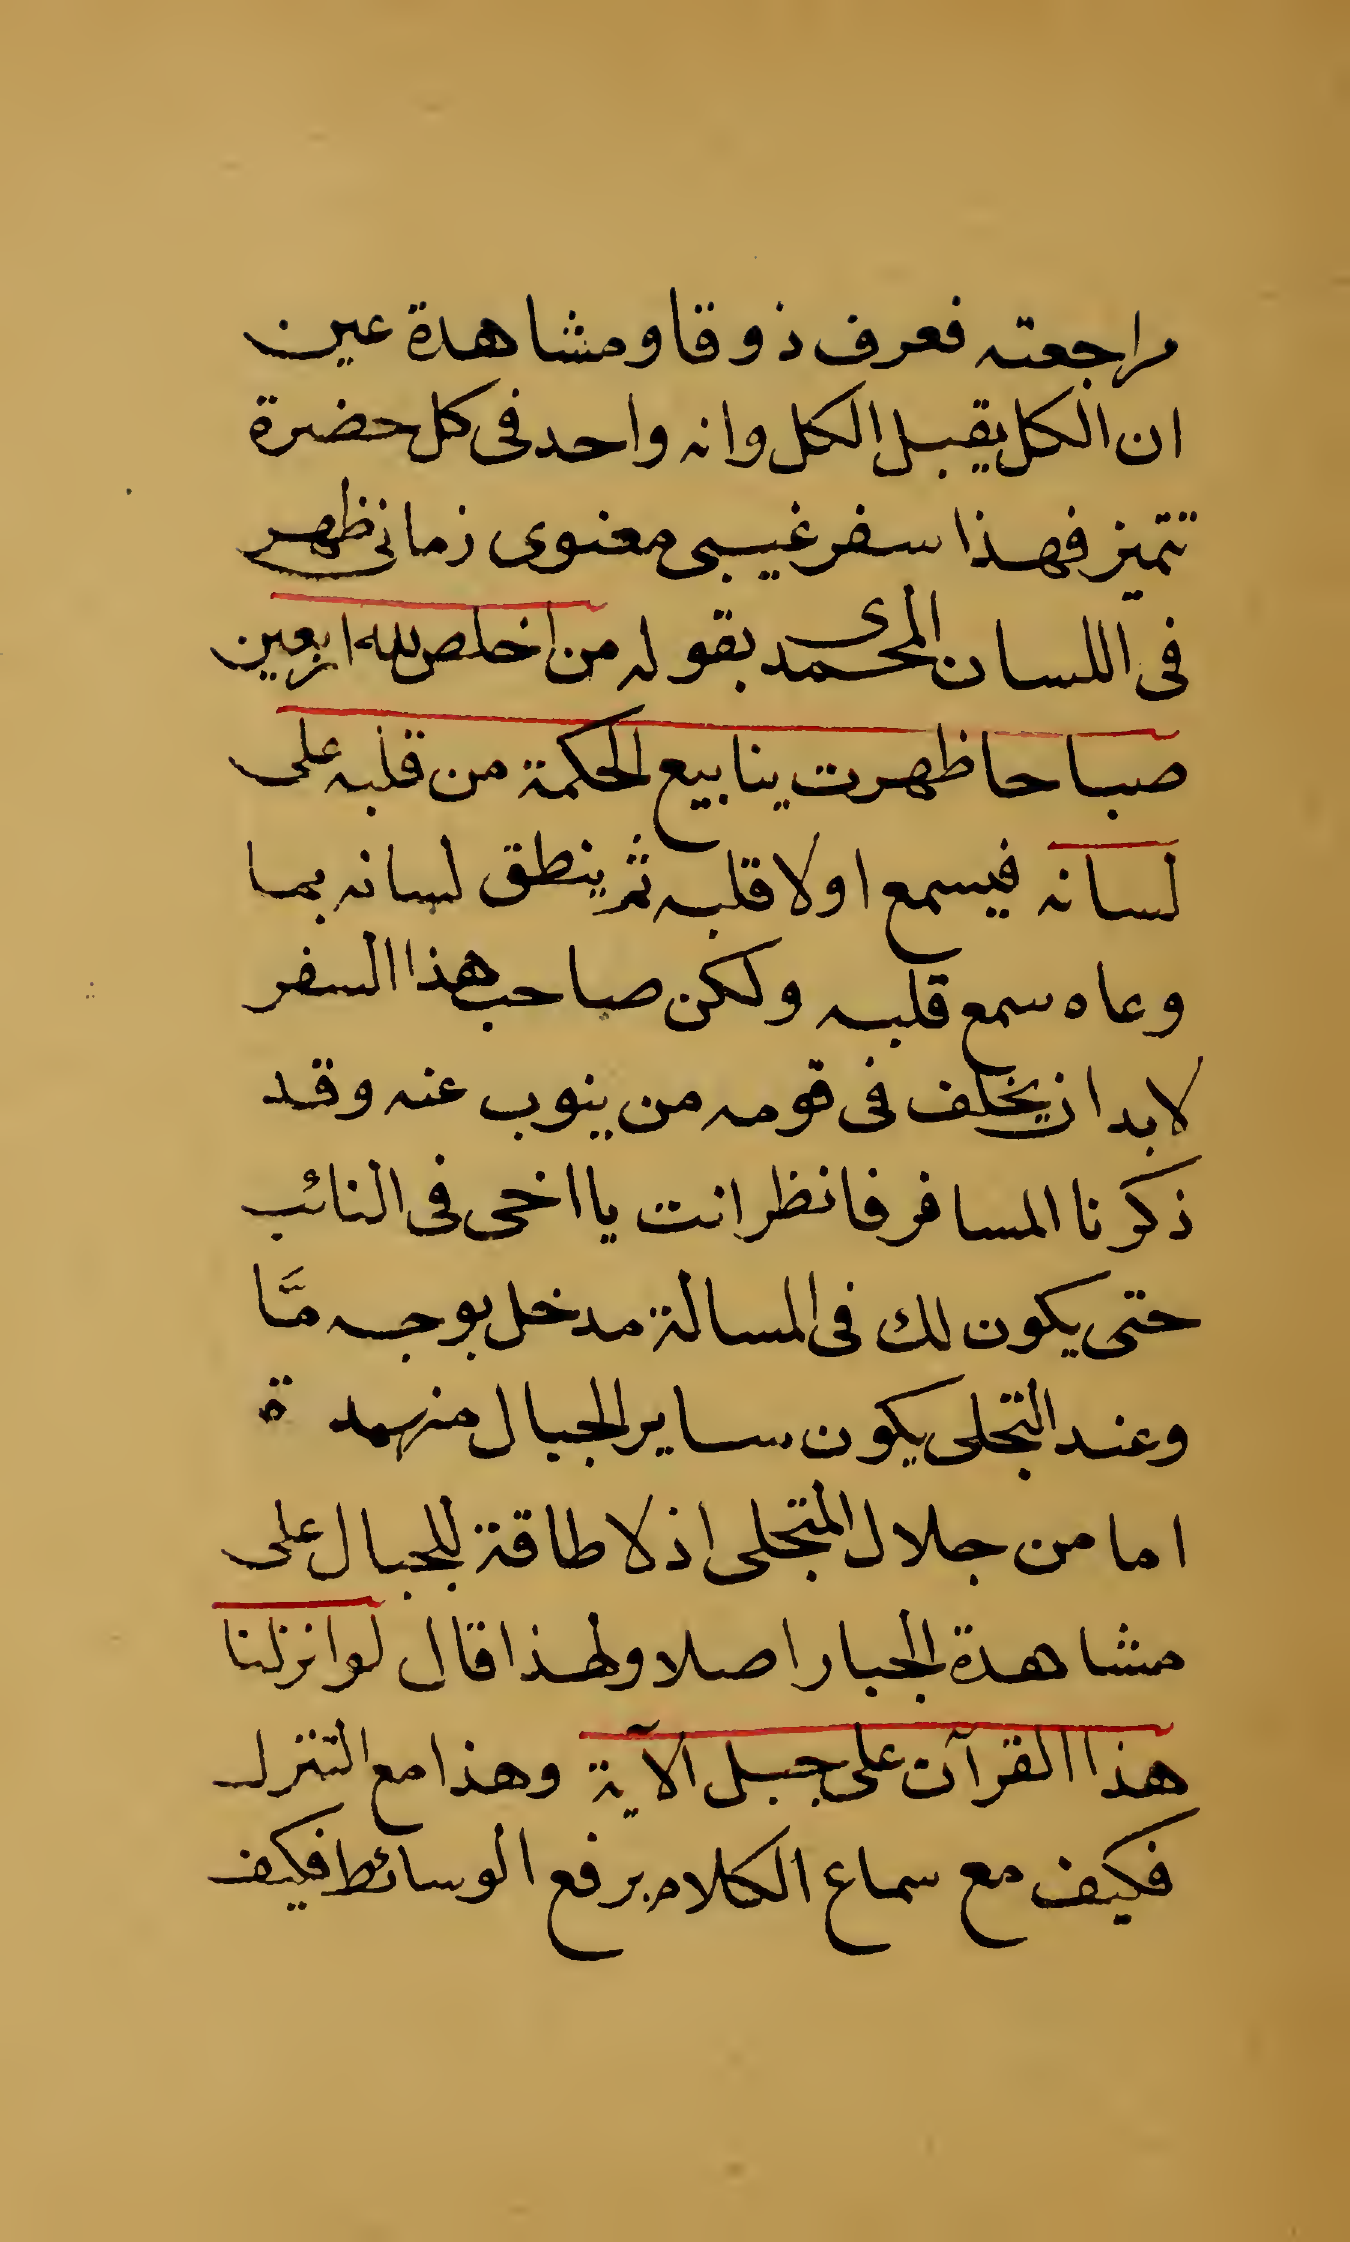 مراجعته فعرف ذوقا ومشاهدة عين
ان الكل يقبل الكل وانه واحد فى كل حضرة
تتميز فهذا سفر غيبى معنوى زمانى ظهر
فى اللسان المحمدى بقوله من اخلص لله اربعين
صباحا ظهرت ينابيع الحكمة من قلبه على
لسانه فيسمع اولا قلبه ثم ينطق لسانه بما
وعاه سمع قلبه ولكن صاحب هذا السفر
لابد ان يخلف فى قومه من ينوب عنه وقد
ذكرنا المسافر فانظر انت يا اخى فى النائب
حتى يكون لك فى المسالة مدخل بوجه مّا
وعند التجلى يكون ساير الجبال منهدة
اما من جلال المتجلى اذ لا طاقة للجبال على
مشاهدة الجبار اصلا ولهذا قال لو انزلنا
هذا القرآن على جبل الآية وهذا مع التنزل
فكيف مع سماع الكلام برفع الوسائط فكيف